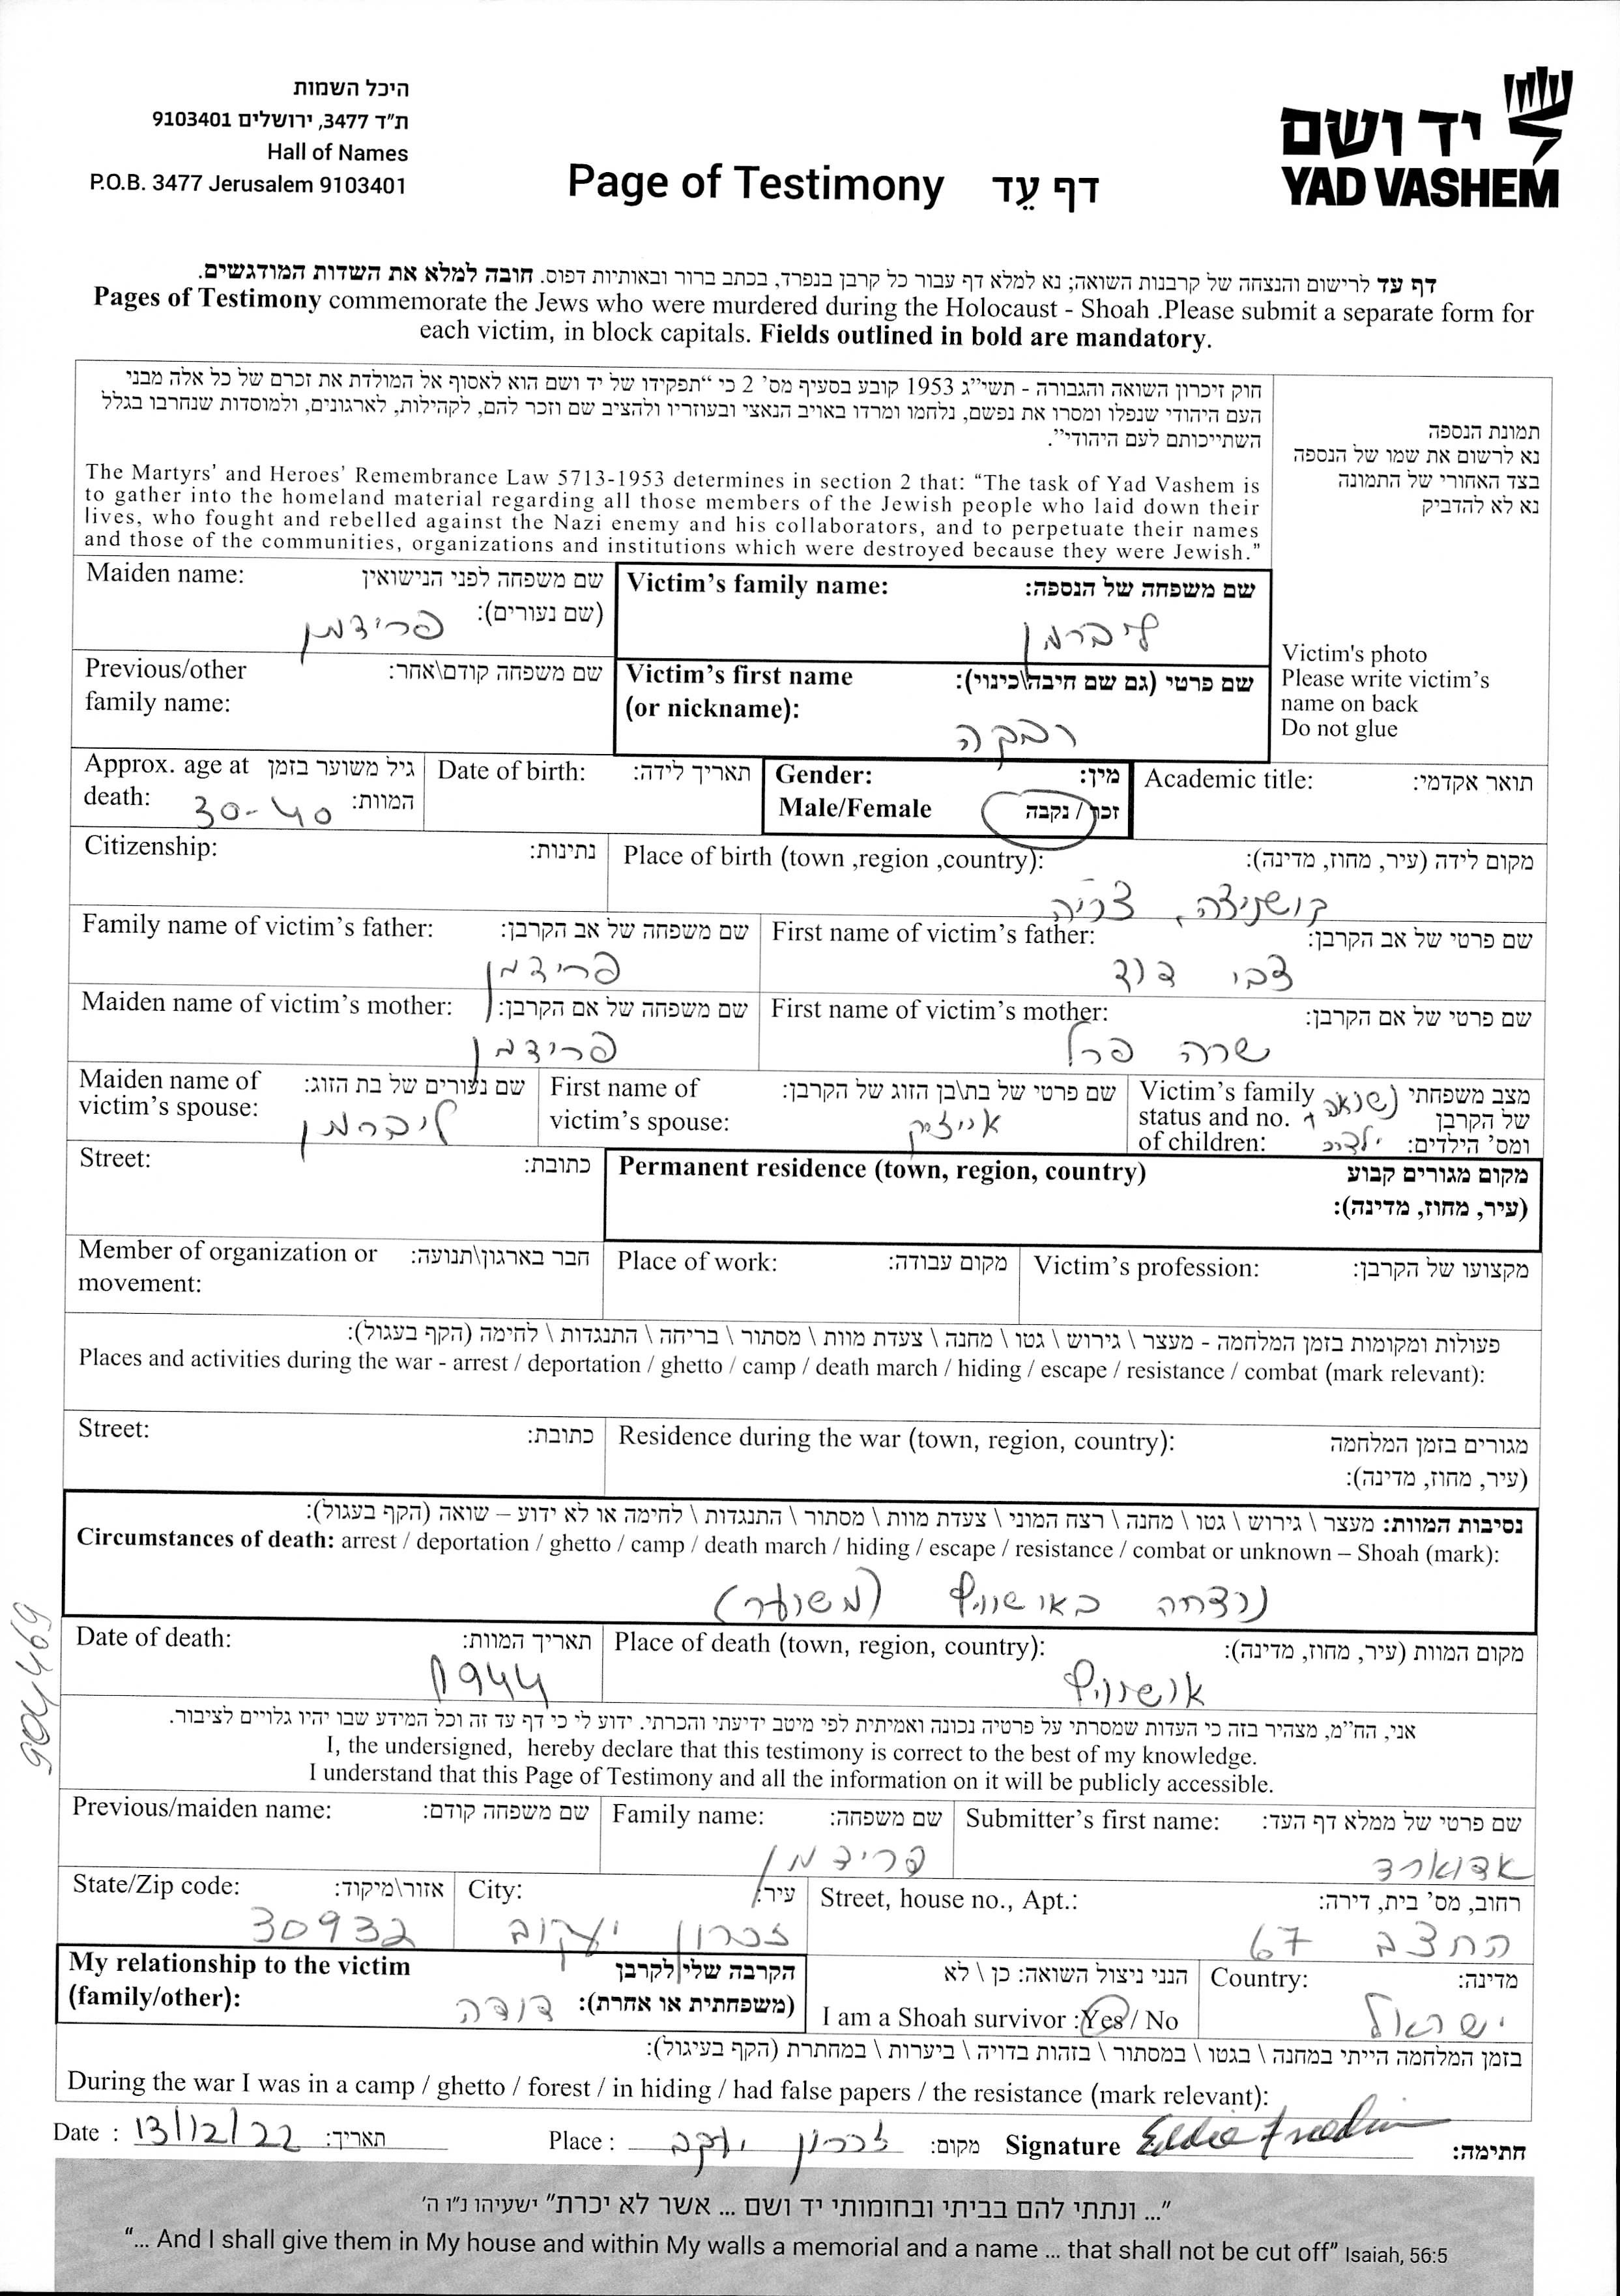 היכל השמות
ת"ד 3477, ירושלים 9103401
Hall of Names
P.O.B. 3477 Jerusalem 9103401
Page of Testimony דף עֵד
יד ושם
YAD VASHEM
דף עד לרישום והנצחה של קרבנות השואה; נא למלא דף עבור כל קרבן בנפרד, בכתב ברור ובאותיות דפוס. חובה למלא את השדות המודגשים.
Pages of Testimony commemorate the Jews who were murdered during the Holocaust - Shoah .Please submit a separate form for
each victim, in block capitals. Fields outlined in bold are mandatory.
חוק זיכרון השואה והגבורה - תשי"ג 1953 קובע בסעיף מס' 2 כי "תפקידו של יד ושם הוא לאסוף אל המולדת את זכרם של כל אלה מבני
העם היהודי שנפלו ומסרו את נפשם, נלחמו ומרדו באויב הנאצי ובעוזריו ולהציב שם וזכר להם, לקהילות, לארגונים, ולמוסדות שנחרבו בגלל
השתייכותם לעם היהודי".
The Martyrs' and Heroes' Remembrance Law 5713-1953 determines in section 2 that: "The task of Yad Vashem is
to gather into the homeland material regarding all those members of the Jewish people who laid down their
lives, who fought and rebelled against the Nazi enemy and his collaborators, and to perpetuate their names
and those of the communities, organizations and institutions which were destroyed because they were Jewish."
תמונת הנספה
נא לרשום את שמו של הנספה
בצד האחורי של התמונה
נא לא להדביק
Victim's photo
Please write victim's
name on back
Do not glue
Victim's family name: שם משפחה של הנספה:
ליברמן
Maiden name: שם משפחה לפני הנישואין
(שם נעורים):
פרידמן
Victim's first name שם פרטי (גם שם חיבה\כינוי):
(or nickname):
רבקה
Previous/other שם משפחה קודם\אחר:
family name:
Academic title: תואר אקדמי:
Gender: מין:
Male/Female זכר / נקבה
Date of birth: תאריך לידה:
Approx. age at גיל משוער בזמן
death: המוות:
30-40
Place of birth (town ,region ,country): מקום לידה (עיר, מחוז, מדינה):
קושניצה, צכיה
Citizenship: נתינות:
First name of victim's father: שם פרטי של אב הקרבן:
צבי דוד
Family name of victim's father: שם משפחה של אב הקרבן:
פרידמן
First name of victim's mother: שם פרטי של אם הקרבן:
שרה פרל
Maiden name of victim's mother: שם משפחה של אם הקרבן:
פרידמן
Victim's family מצב משפחתי
status and no. של הקרבן
of children: ומס' הילדים:
נשואה
ילדים
First name of שם פרטי של בת\בן הזוג של הקרבן:
victim's spouse:
אייזיק
Maiden name of שם נעורים של בת הזוג:
victim's spouse:
ליברמן
Permanent residence (town, region, country) מקום מגורים קבוע
(עיר, מחוז, מדינה):
Street: כתובת:
Victim's profession: מקצועו של הקרבן:
Place of work: מקום עבודה:
Member of organization or חבר בארגון\תנועה:
movement:
פעולות ומקומות בזמן המלחמה - מעצר \ גירוש \ גטו \ מחנה \ צעדת מוות \ מסתור \ בריחה \ התנגדות \ לחימה (הקף בעגול):
Places and activities during the war - arrest / deportation / ghetto / camp / death march / hiding / escape / resistance / combat (mark relevant):
Residence during the war (town, region, country): מגורים בזמן המלחמה
(עיר, מחוז, מדינה):
Street: כתובת:
נסיבות המוות: מעצר \ גירוש \ גטו \ מחנה \ רצח המוני \ צעדת מוות \ מסתור \ התנגדות \ לחימה או לא ידוע – שואה (הקף בעגול):
Circumstances of death: arrest / deportation / ghetto / camp / death march / hiding / escape / resistance / combat or unknown – Shoah (mark):
נרצחה באושוויץ (משוער)
Place of death (town, region, country): מקום המוות (עיר, מחוז, מדינה):
אושוויץ
Date of death: תאריך המוות:
1944
אני, הח"מ, מצהיר בזה כי העדות שמסרתי על פרטיה נכונה ואמיתית לפי מיטב ידיעתי והכרתי. ידוע לי כי דף עד זה וכל המידע שבו יהיו גלויים לציבור.
I, the undersigned, hereby declare that this testimony is correct to the best of my knowledge.
I understand that this Page of Testimony and all the information on it will be publicly accessible.
Submitter's first name: שם פרטי של ממלא דף העד:
אדוארד
Family name: שם משפחה:
פרידמן
Previous/maiden name: שם משפחה קודם:
Street, house no., Apt.: רחוב, מס' בית, דירה:
החצב 67
City: עיר:
זכרון יעקוב
State/Zip code: אזור\מיקוד:
30932
Country: מדינה:
ישראל
הנני ניצול השואה: כן \ לא
I am a Shoah survivor :Yes / No
My relationship to the victim הקרבה שלי לקרבן
(family/other): (משפחתית או אחרת):
דודה
בזמן המלחמה הייתי במחנה \ בגטו \ במסתור \ בזהות בדויה \ ביערות \ במחתרת (הקף בעיגול):
During the war I was in a camp / ghetto / forest / in hiding / had false papers / the resistance (mark relevant):
Date : 13/12/22 תאריך: Place : זכרון יעקב מקום: Signature Eddie Friedman חתימה:
"... ונתתי להם בביתי ובחומותי יד ושם ... אשר לא יכרת" ישעיהו נ"ו ה'
"... And I shall give them in My house and within My walls a memorial and a name ... that shall not be cut off" Isaiah, 56:5
904469